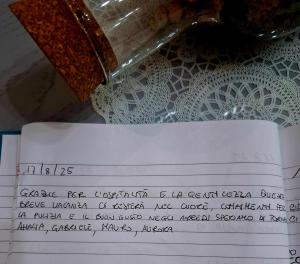 17/8/25
GRAZIE PER L'OSPITALITÀ E LA GENTILEZZA QUESTA
BREVE VACANZA CI RESTERÀ NEL CUORE, COMPLIMENTI PER
LA PULIZIA E IL BUON GUSTO NEGLI ARREDI SPERIAMO DI TORNARE
AMALIA, GABRIELE, MAURO, AURORA